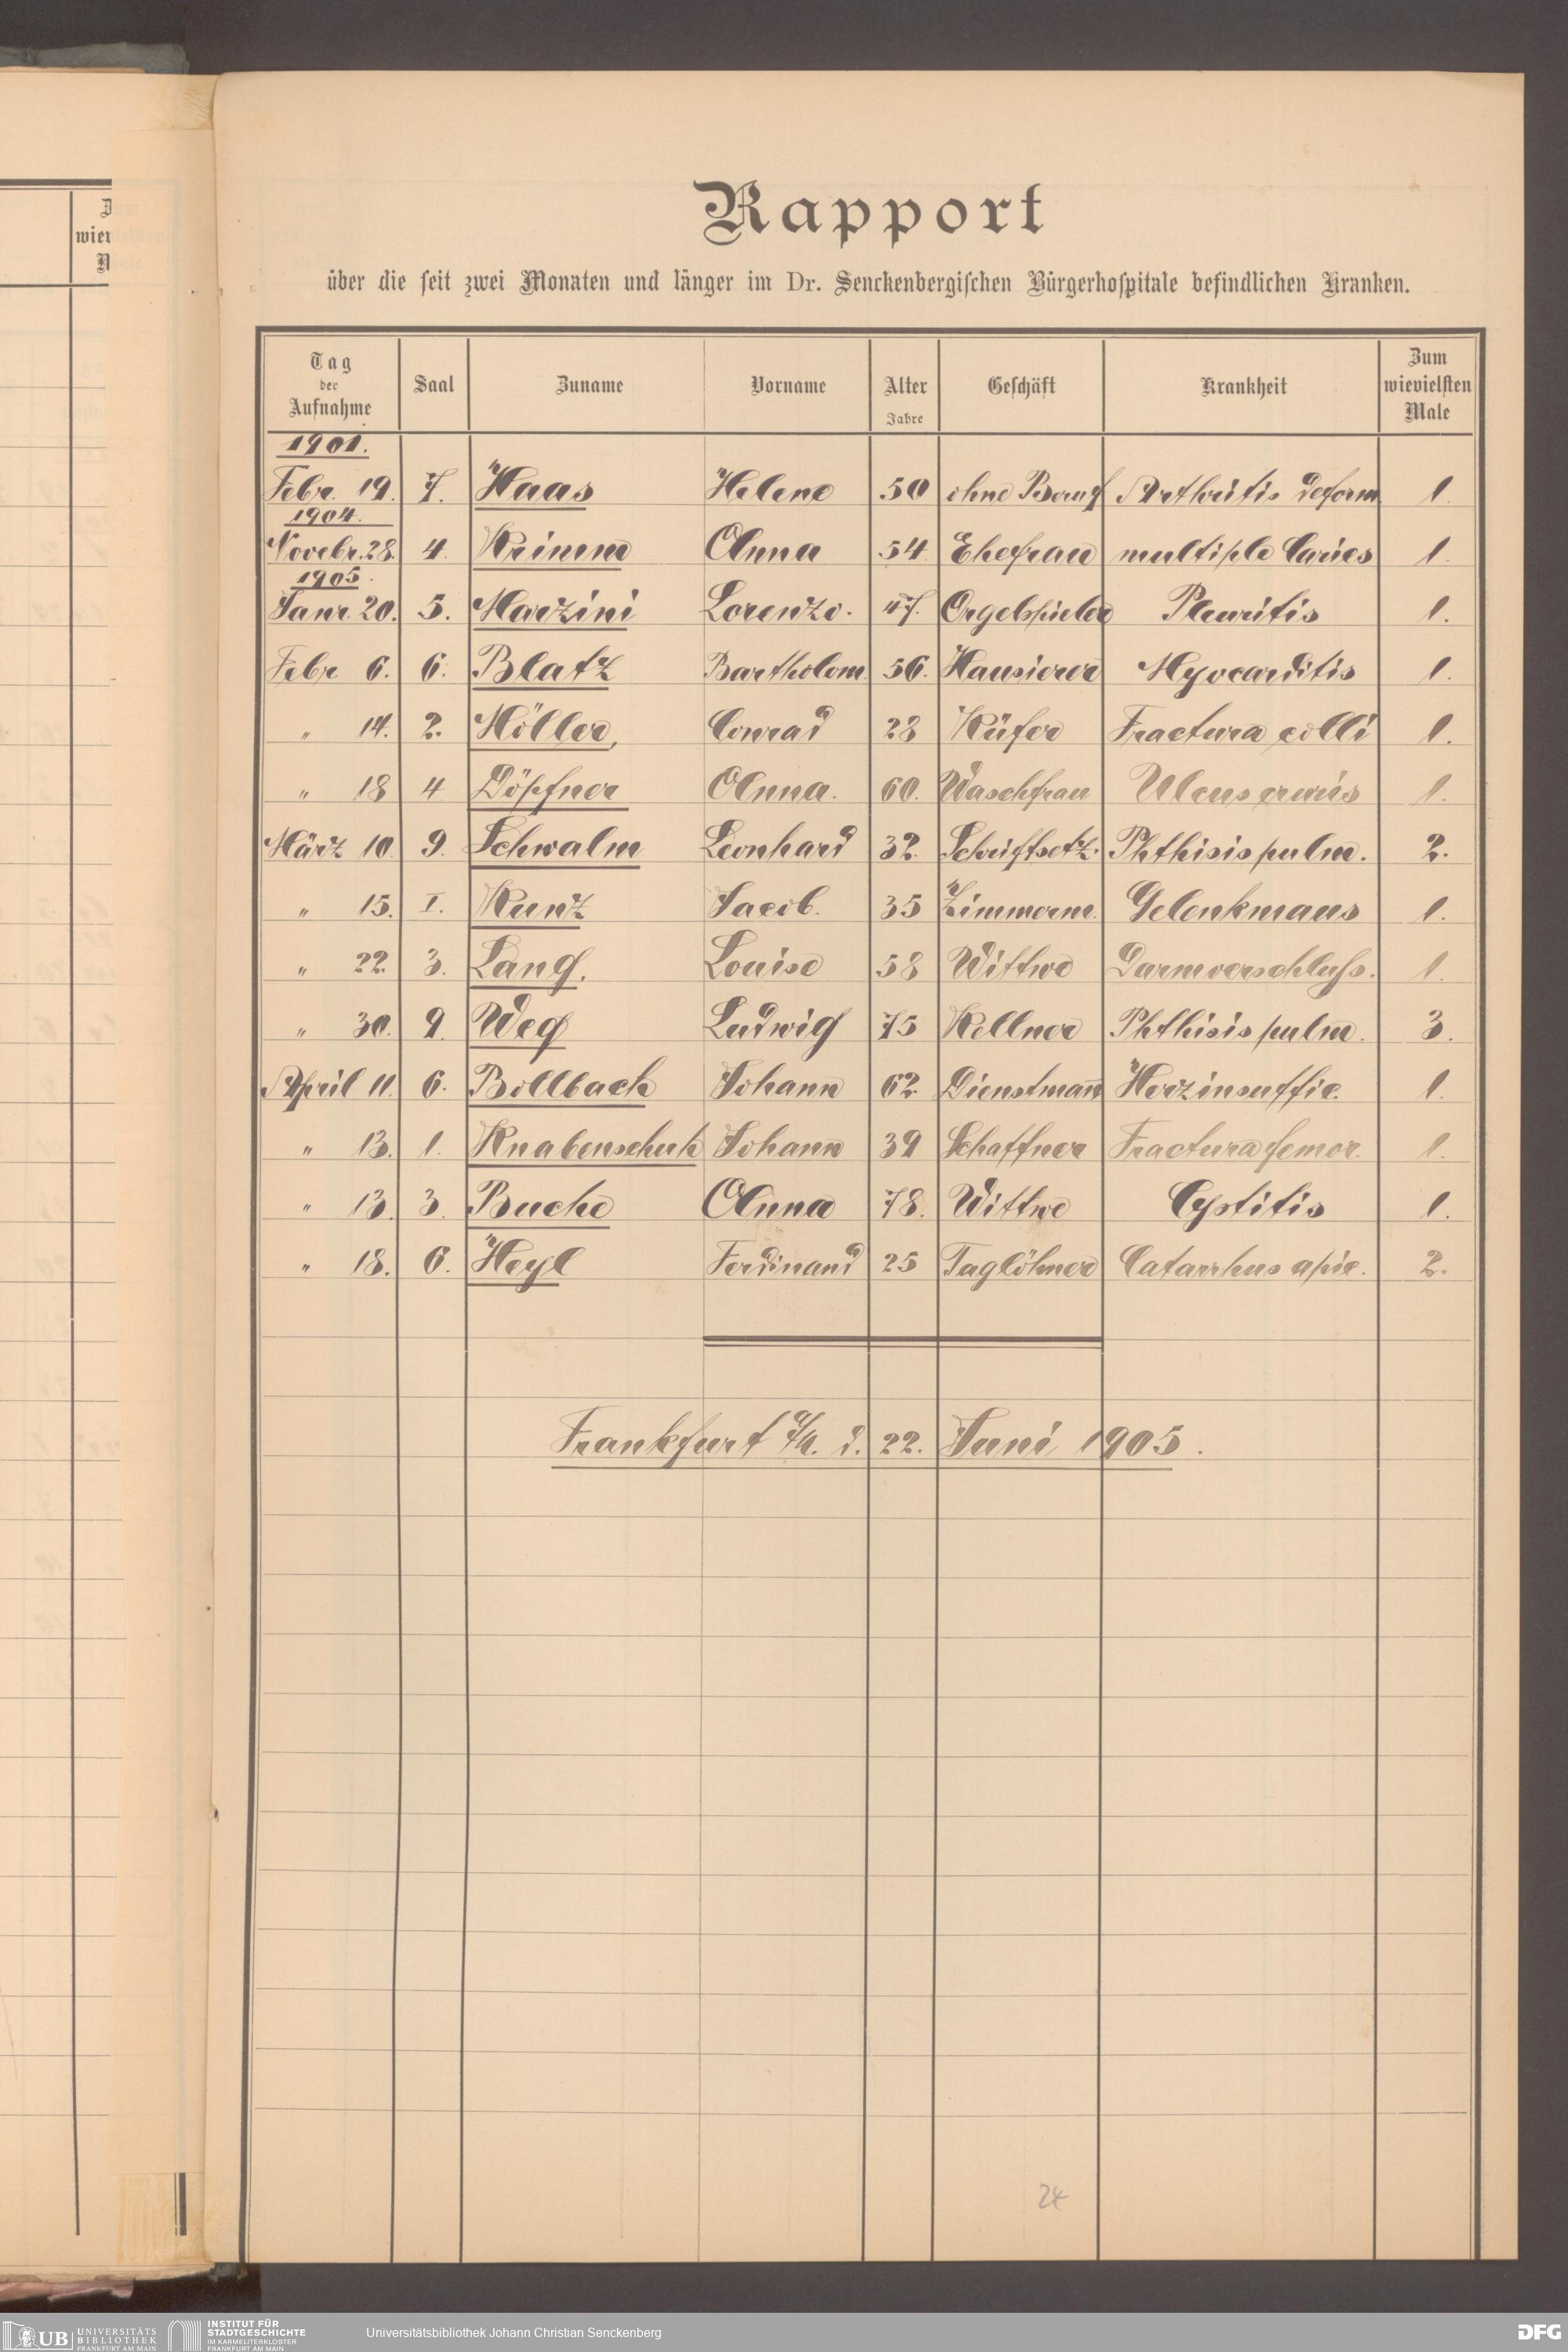 Rapport
über die seit zwei Monaten und länger im Dr. Senckenbergischen Bürgerhospitale befindlichen Kranken.
Tag der Aufnahme Saal Zuname Vorname Alter Jahre Geschäft Krankheit Zum wievielsten Male
1901.
Febr. 19. 7. Haas Helene 50 ohne Beruf Arthritis deform 1.
1904.
Novebr. 28. 4. Krimm Anna 54 Ehefrau multiple Caries 1.
1905.
Janr. 20. 5. Marzini Lorenzo. 47. Orgelspieler Pleuritis 1.
Febr 6. 6. Blatz Bartholom. 56. Hausierer Myocarditis 1.
" 14. 2. Möller, Conrad 28 Küfer Fractura colli 1.
" 18 4 Döpfner Anna. 60. Waschfrau Ulcus cruris 1.
März 10. 9. Schwalm Leonhard 32. Schriftsetz. Phthisis pulm. 2.
" 15. I. Kunz Jacob. 35 Zimmerm. Gelenkmaus 1.
" 22. 3. Lang. Louise 58 Wittwe Darmverschluss. 1.
" 30. 9. Weg Ludwig 75 Kellner Phthisis pulm. 3.
April 11. 6. Bollbach Johann 62. Dienstmañ Herzinsuffic. 1.
" 13. 1. Knabenschuh Johann 39 Schaffner Fractura femor. 1.
" 13. 3. Buche Anna 78. Wittwe Cystitis 1.
" 18. 6. Heyl Ferdinand 25 Taglöhner Catarrhus apic. 2.
Frankfurt a/M. d. 22. Juni 1905.
24
UB UNIVERSITÄTS BIBLIOTHEK FRANKFURT AM MAIN
INSTITUT FÜR STADTGESCHICHTE IM KARMELITERKLOSTER FRANKFURT AM MAIN
Universitätsbibliothek Johann Christian Senckenberg
DFG